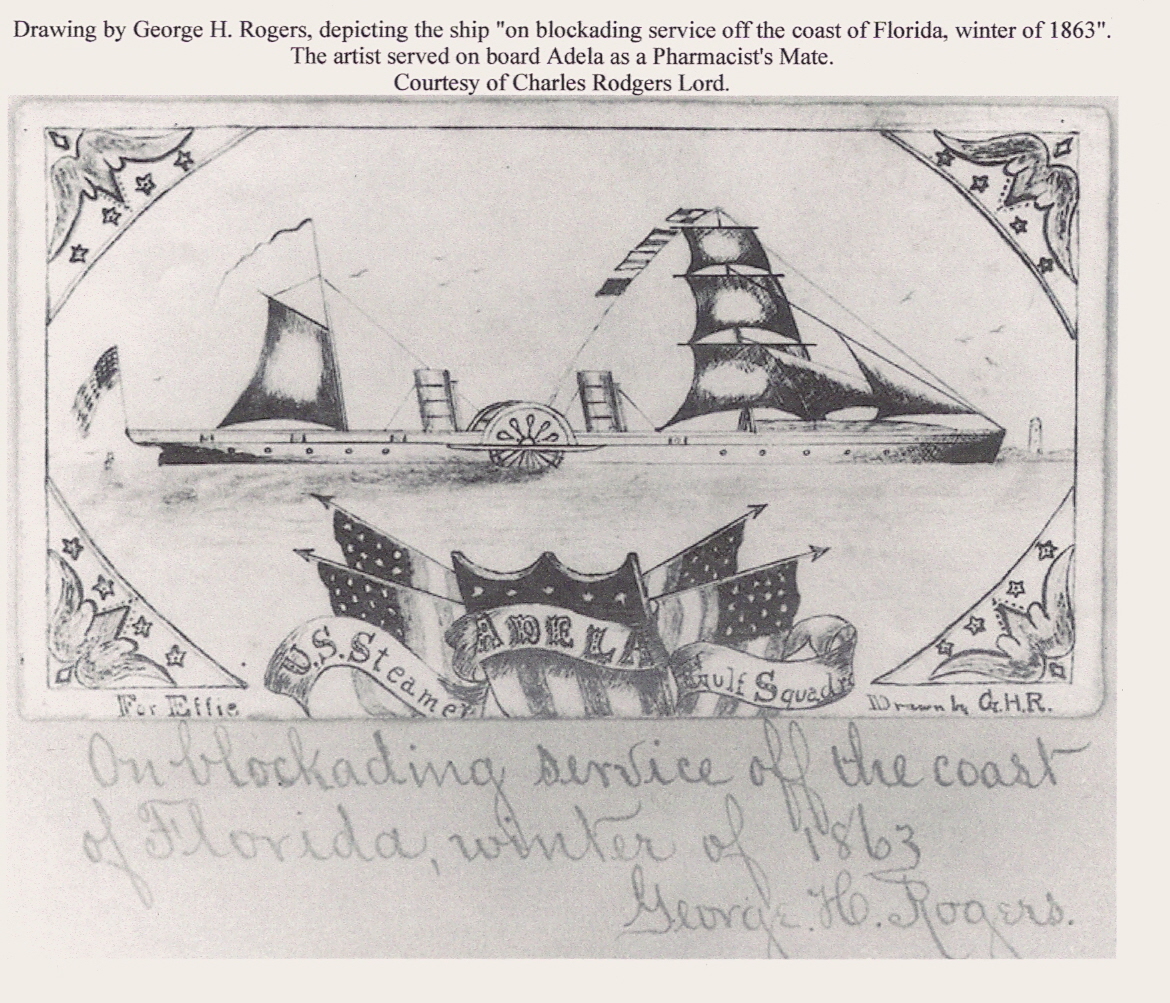 Drawing by George H. Rogers, depicting the ship "on blockading service off the coast of Florida, winter of 1863".
The artist served on board Adela as a Pharmacist's Mate.
Courtesy of Charles Rodgers Lord.
ADELA
U.S. Steamer
Gulf Squadr
For Effie
Drawn by G.H.R.
On blockading service off the coast
of Florida, winter of 1863
George. H. Rogers.